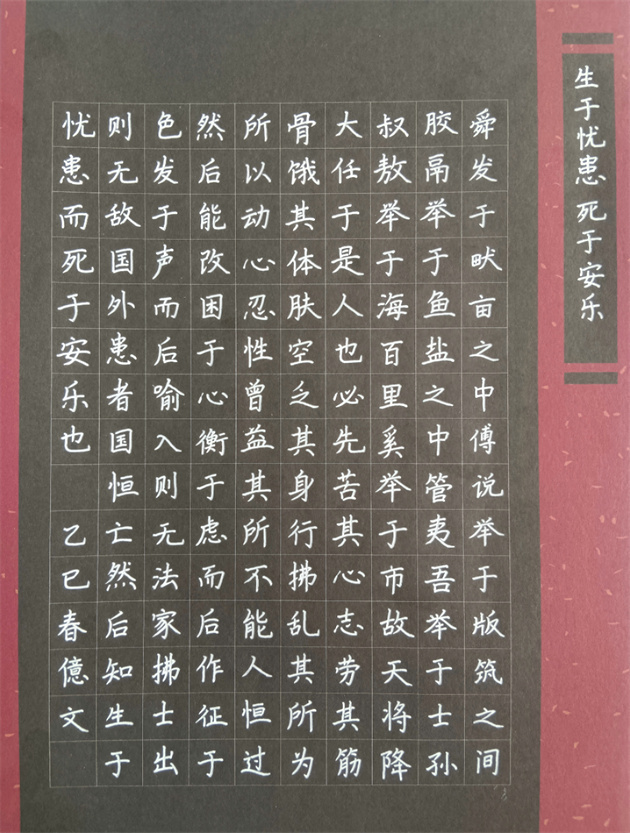 生于忧患 死于安乐
舜发于畎亩之中傅说举于版筑之间
胶鬲举于鱼盐之中管夷吾举于士孙
叔敖举于海百里奚举于市故天将降
大任于是人也必先苦其心志劳其筋
骨饿其体肤空乏其身行拂乱其所为
所以动心忍性曾益其所不能人恒过
然后能改困于心衡于虑而后作征于
色发于声而后喻入则无法家拂士出
则无敌国外患者国恒亡然后知生于
忧患而死于安乐也 乙巳春億文